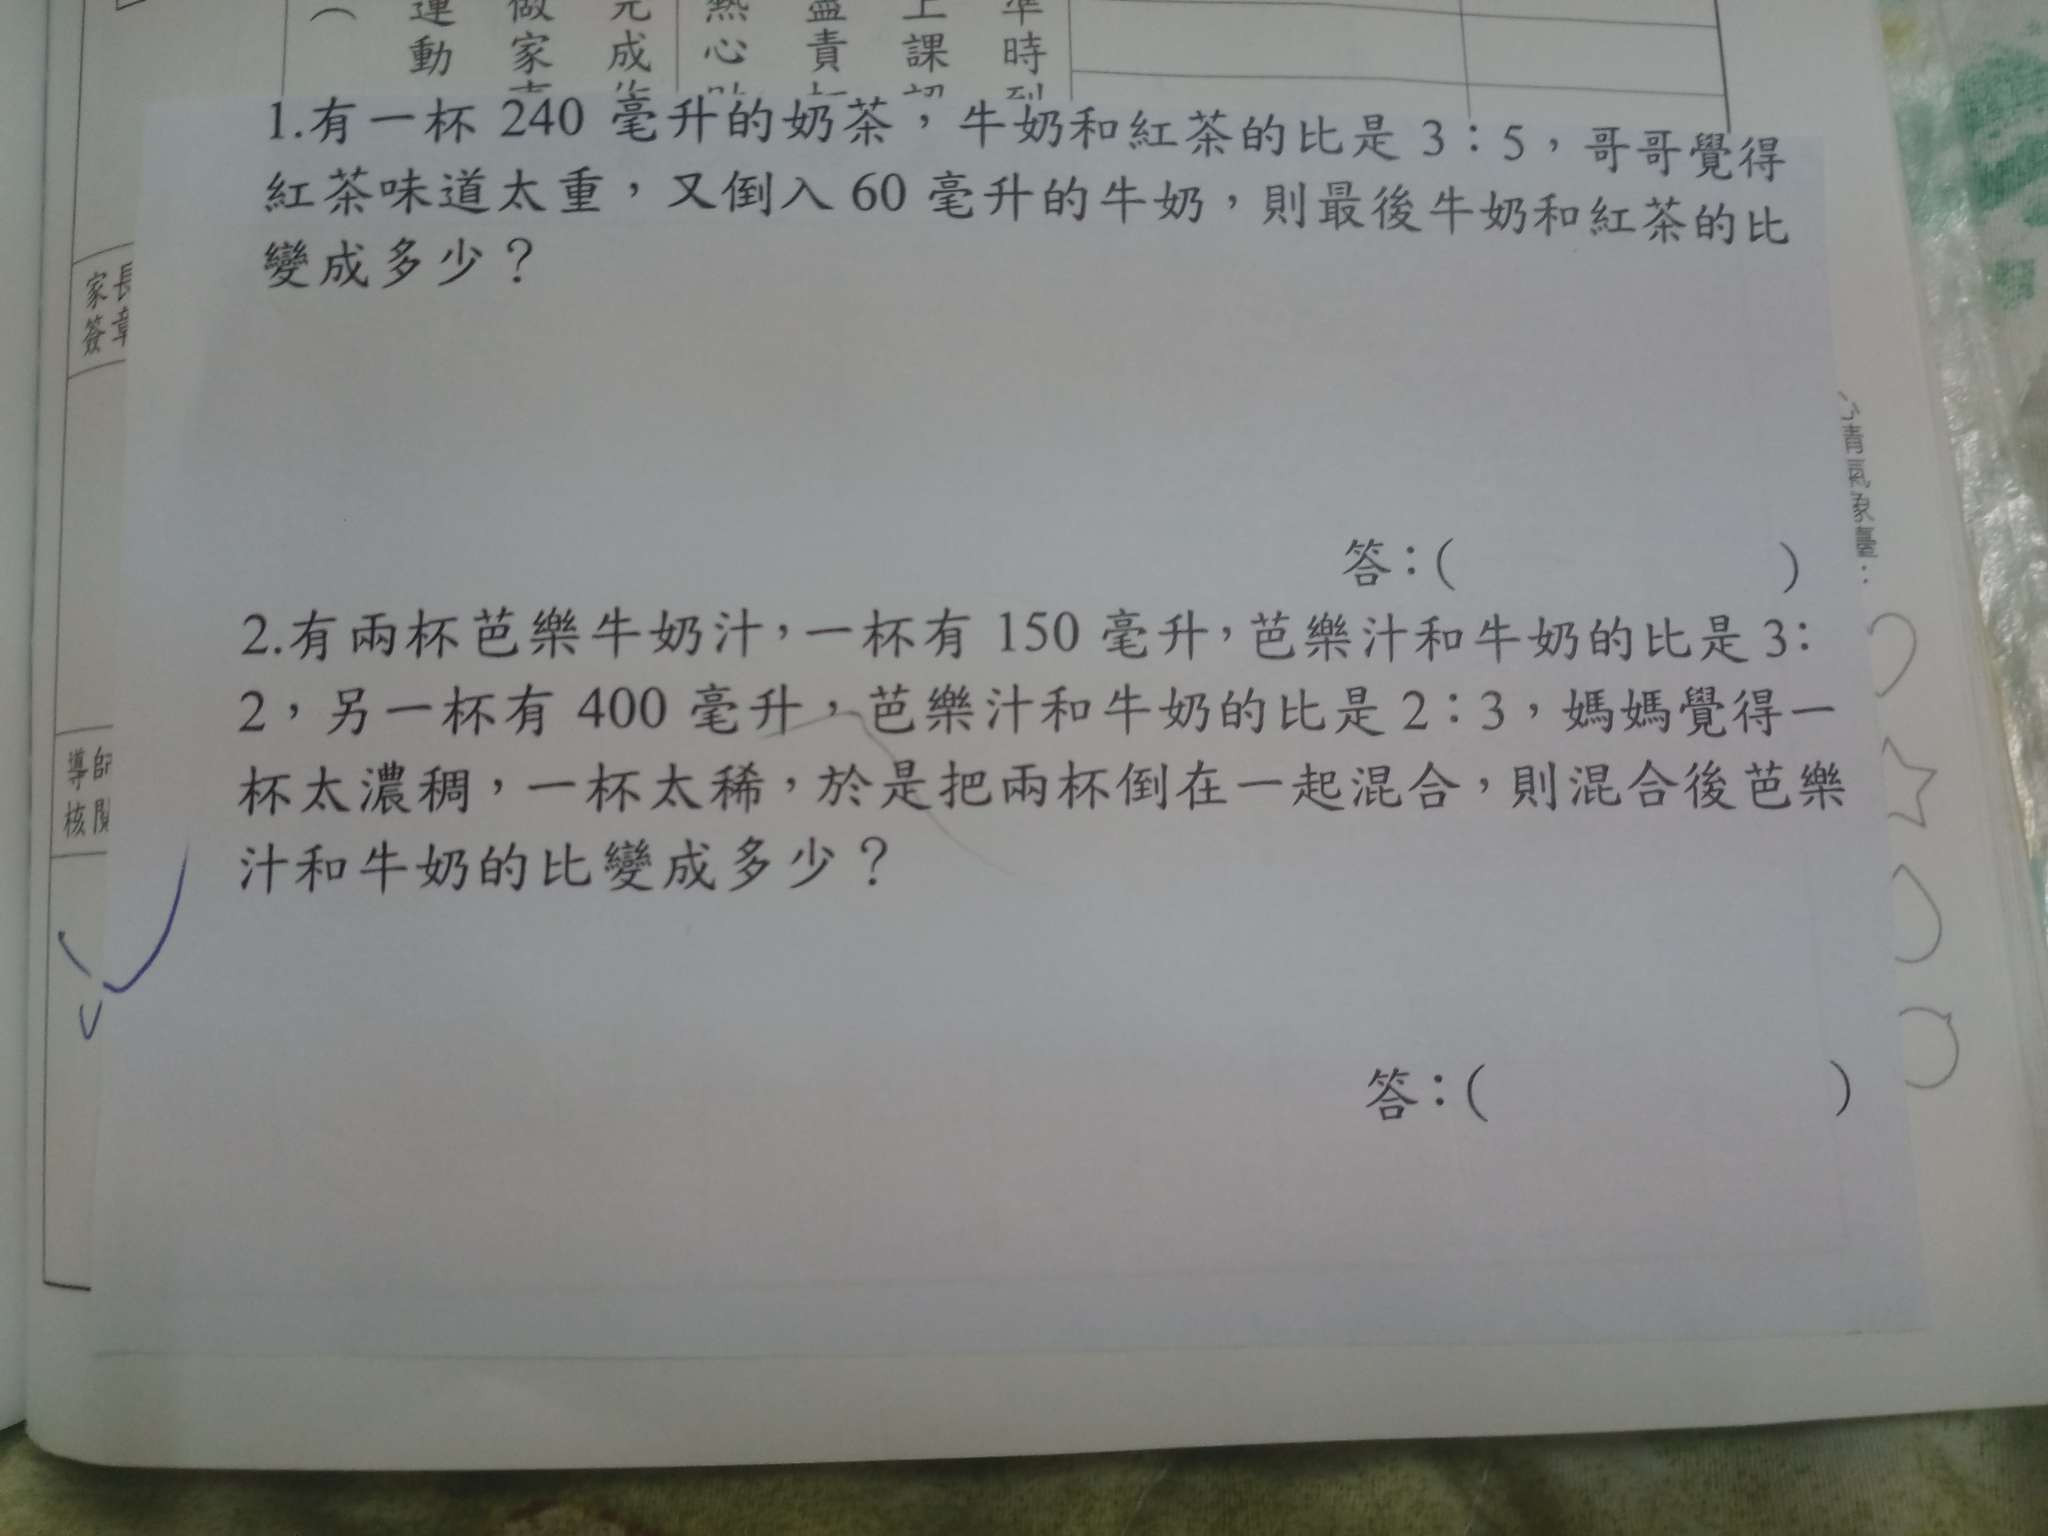 準時到
上課認
盡責
熱心
完成作
做家事
運動
（
1.有一杯 240 毫升的奶茶，牛奶和紅茶的比是 3：5，哥哥覺得
紅茶味道太重，又倒入 60 毫升的牛奶，則最後牛奶和紅茶的比
變成多少？
家長
簽章
答：( )
2.有兩杯芭樂牛奶汁，一杯有 150 毫升，芭樂汁和牛奶的比是 3：
2，另一杯有 400 毫升，芭樂汁和牛奶的比是 2：3，媽媽覺得一
杯太濃稠，一杯太稀，於是把兩杯倒在一起混合，則混合後芭樂
汁和牛奶的比變成多少？
導師
核閱
答：( )